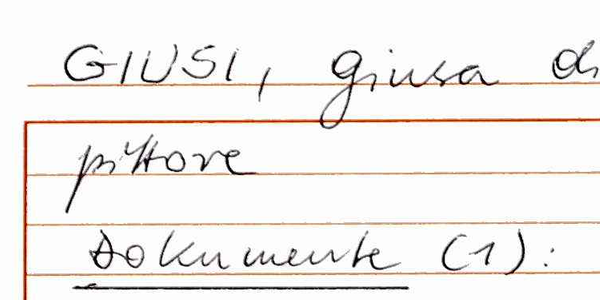 GIUSI, Giusa di
pittore
Dokumente (1):